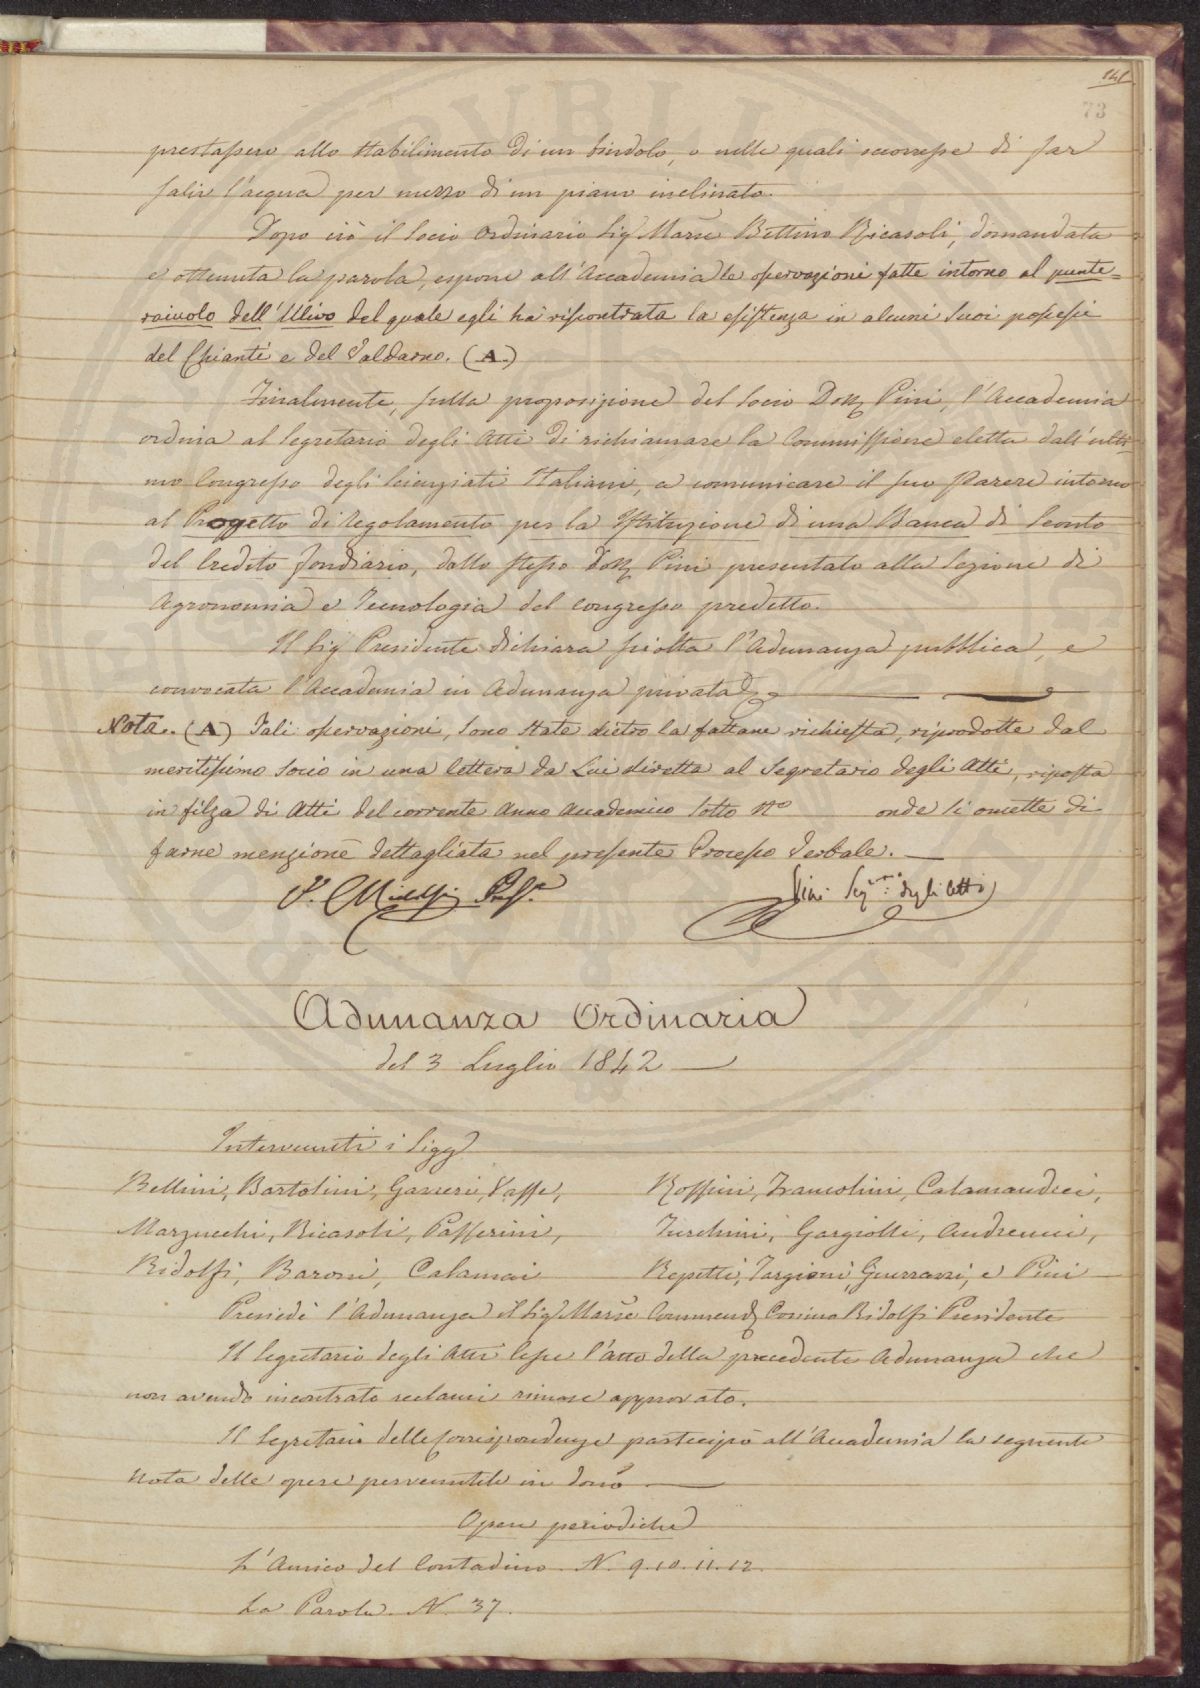 141
73
prestassero allo stabilimento di un bindolo, o nelle quali occorresse di far
salir l'acqua per mezzo di un piano inclinato.
Dopo ciò il Socio Ordinario Sig Marse Bettino Ricasoli, domandata
e ottenuta la parola, espone all'Accademia le osservazioni fatte intorno al punte=
raiuolo dell'Ulivo del quale egli ha riscontrata la esistenza in alcuni suoi possessi
del Chianti e del Valdarno. (A.)
Finalmente, sulla proposizione del Socio Dott Pini, l'Accademia
ordina al Segretario degli Atti di richiamare la Commissione eletta dall'ulti-
mo Congresso degli Scienziati Italiani, a comunicare il suo Parere intorno
al Progetto di Regolamento per la Istituzione di una Banca di Sconto
del Credito fondiario, dallo stesso Dott Pini presentato alla Sezione di
Agronomia e Tecnologia del congresso predetto.
Il Sig Presidente dichiara sciolta l'Adunanza pubblica, e
convocata l'Accademia in Adunanza privata
Nota. (A) Tali osservazioni, sono state dietro la fattane richiesta, riprodotte dal
meritissimo Socio in una lettera da Lui diretta al Segretario degli Atti, riposta
in filza di Atti del corrente Anno Accademico sotto No onde si omette di
farne menzione dettagliata nel presente Processo Verbale.
Ridolfi Pres.
Pini Segrio: degli Atti
Adunanza Ordinaria
del 3 Luglio 1842
Intervenuti i Sigg
Bellini, Bartolini, Gazzeri, Taffe, Roffini, Francolini, Calamandrei,
Marzucchi, Ricasoli, Passerini, Turchini, Gargiolli, Andreucci,
Ridolfi, Baroni, Calamai Repetti, Targioni, Guerrazzi, e Pini
Presiede l'Adunanza il Sig Marse Commend Cosimo Ridolfi Presidente
Il Segretario degli Atti lesse l'atto della precedente Adunanza che
non avendo incontrato reclami rimase approvato.
Il Segretario delle Corrispondenze partecipò all'Accademia la seguente
nota delle opere pervenutele in dono
Opere periodiche
L'Amico del Contadino. N. 9.10.11.12.
La Parola. N. 37.